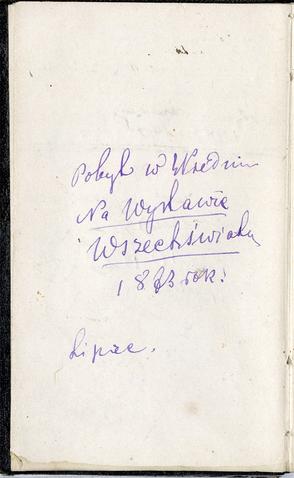 Pobyt w Wiedniu
Na Wystawie
Wszechświata
1873 rok:
Lipiec.